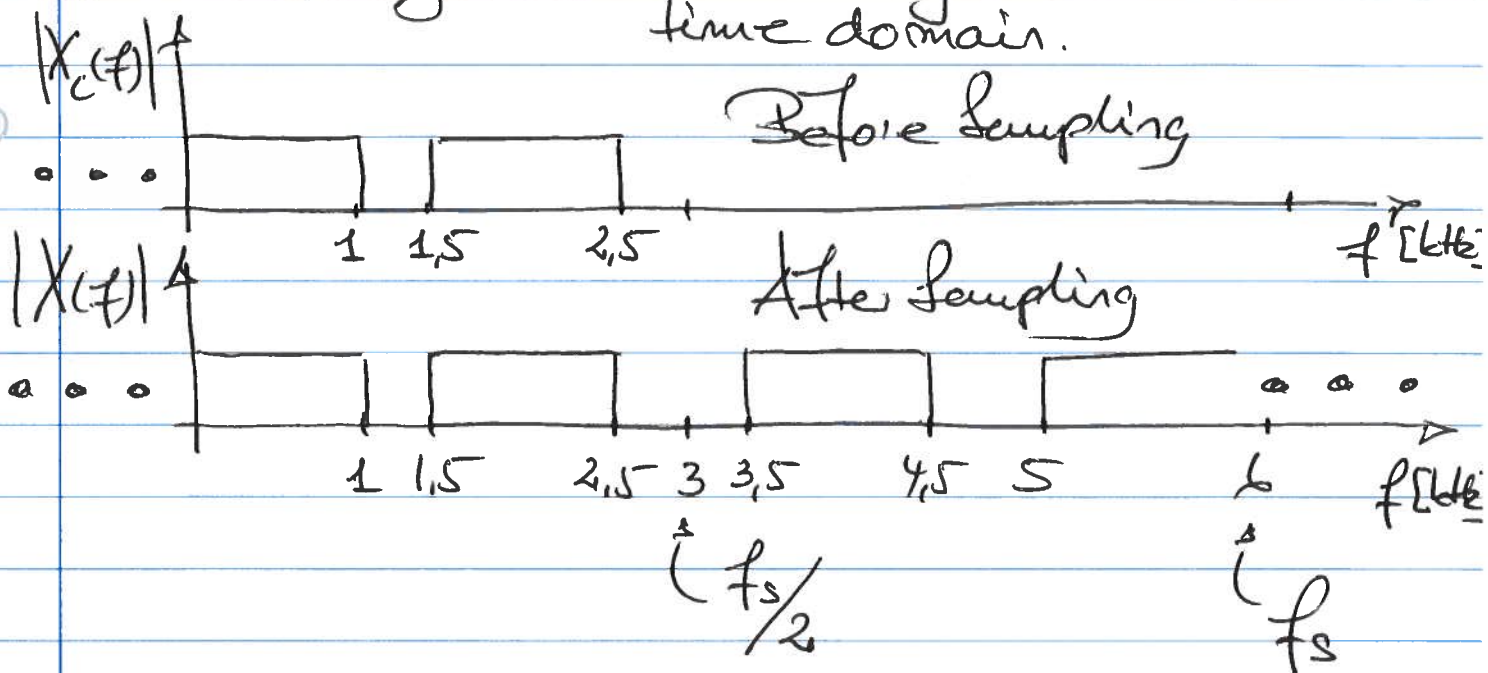 time domain.
|Xc(f)|
Before Sampling
1 1,5 2,5 f [kHz]
|X(f)|
After Sampling
1 1,5 2,5 3 3,5 4,5 5 6 f [kHz
fs/2 fs